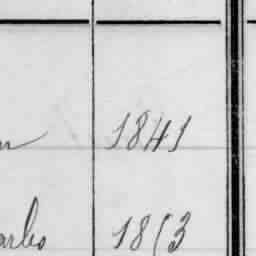 1841
arles 1853